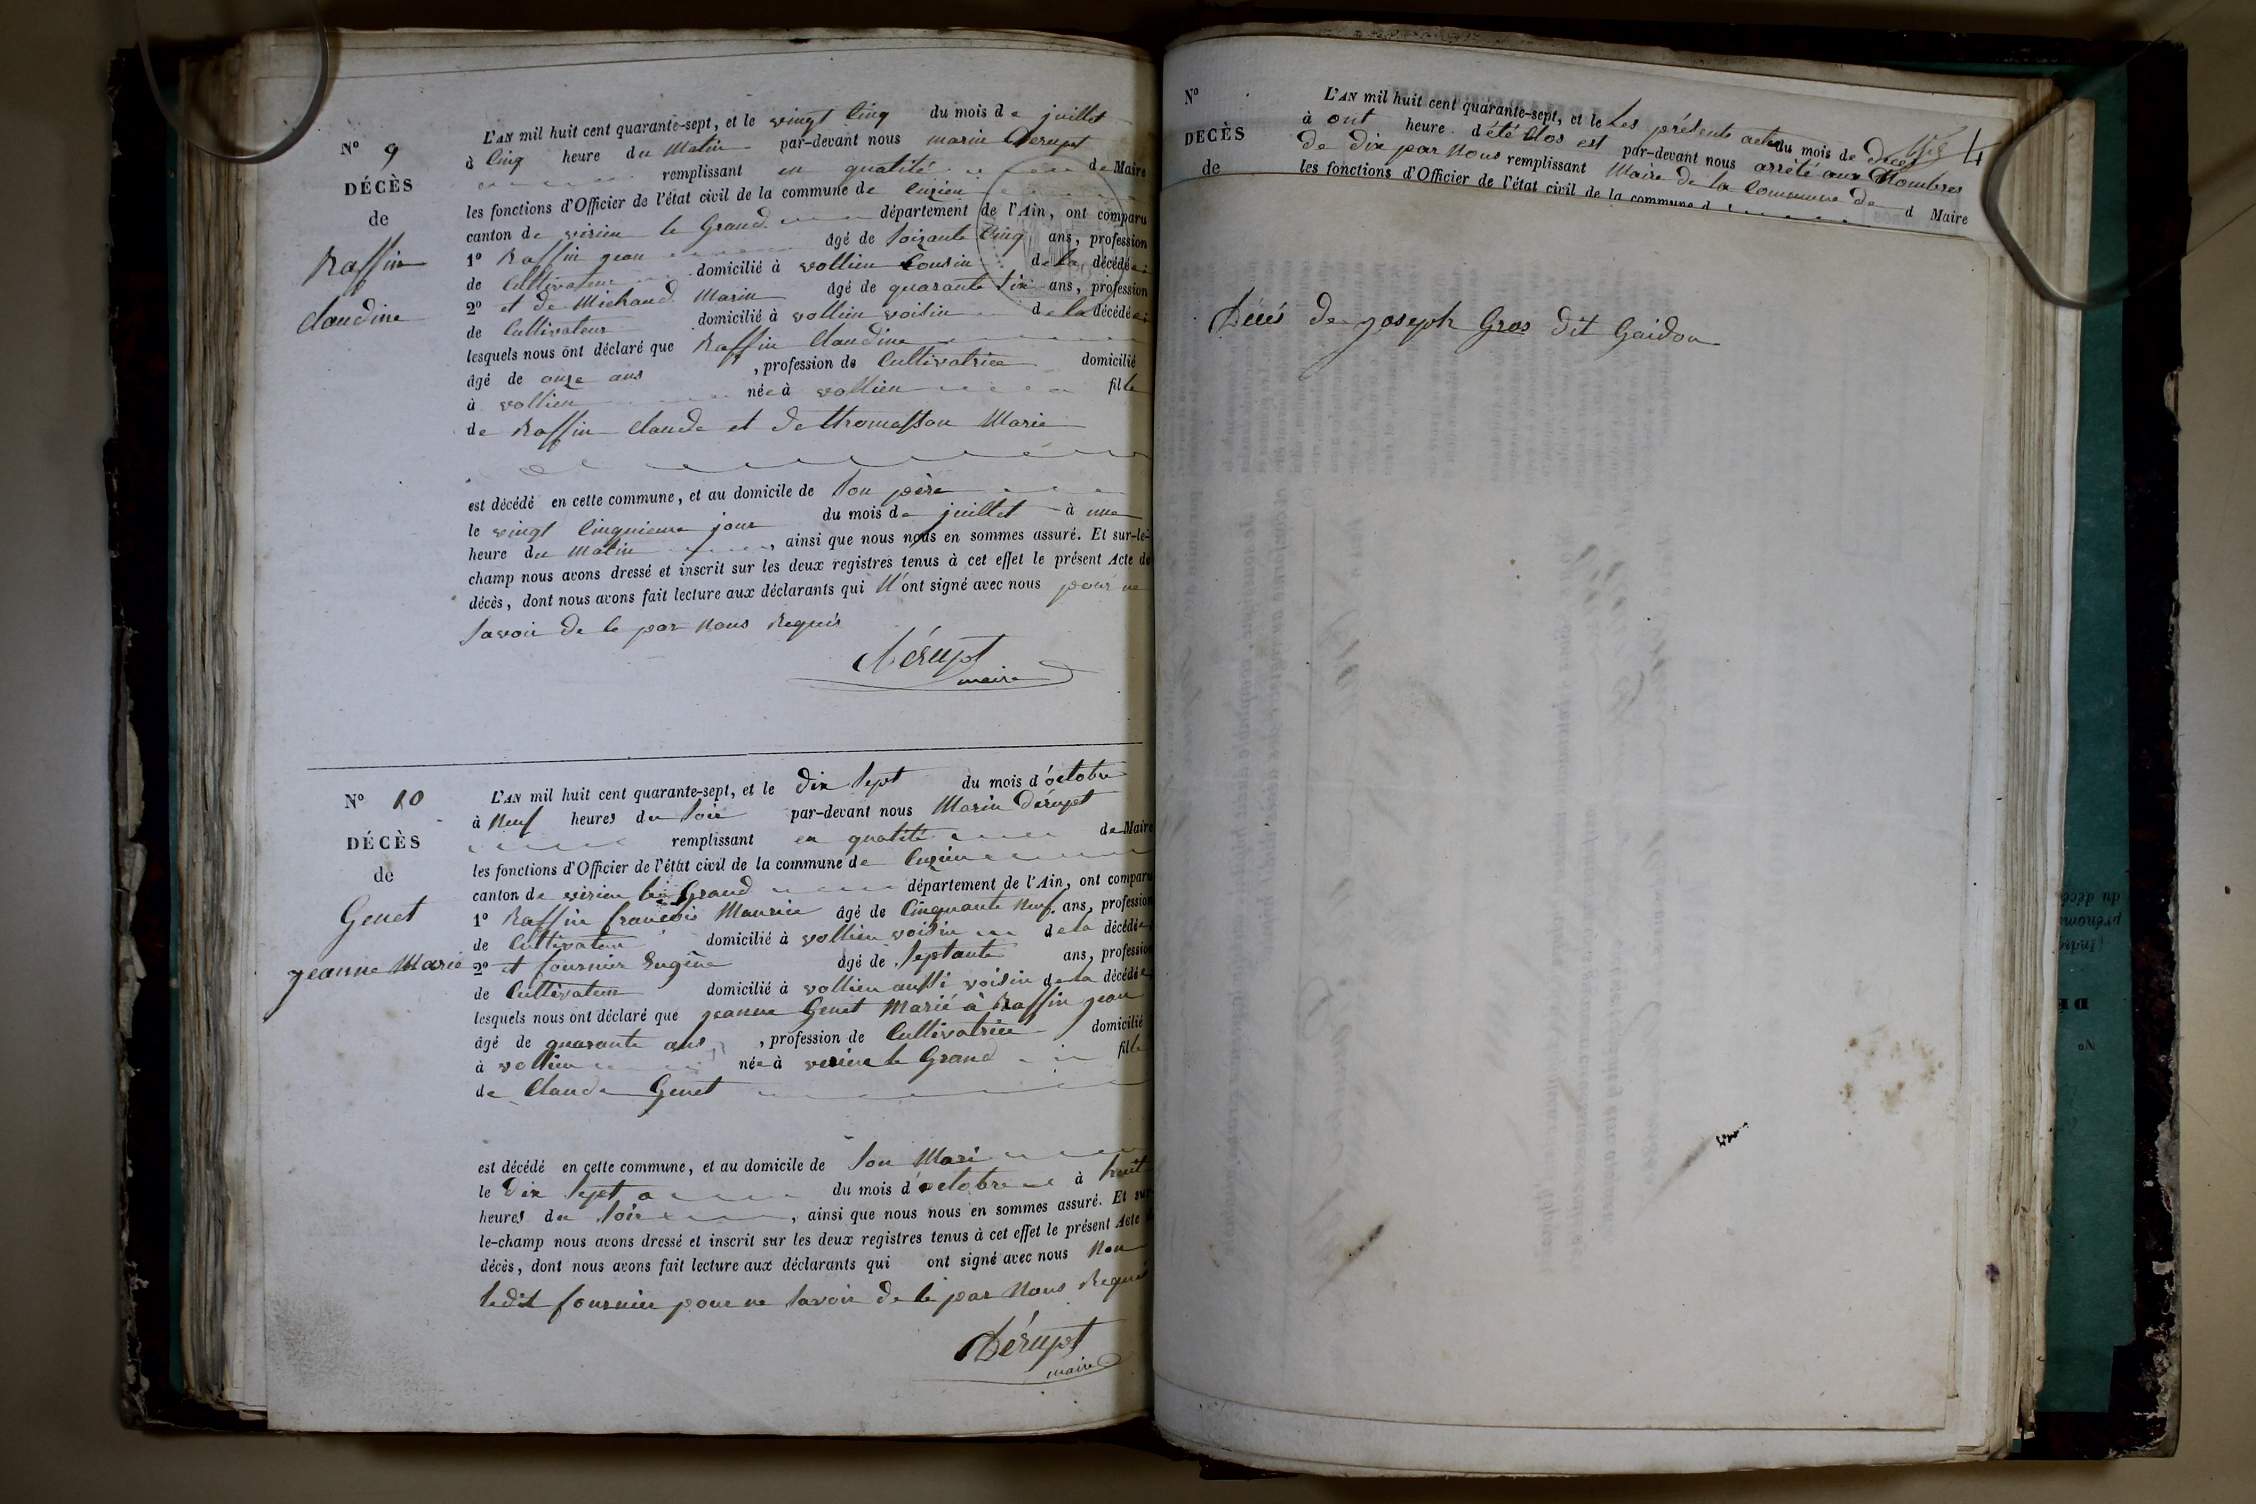 N° 9
DÉCÈS
de
Raffin
claudine
L'AN mil huit cent quarante-sept, et le vingt cinq du mois de juillet
à cinq heure du matin par-devant nous marin Derupt
remplissant en qualité de Maire
les fonctions d'Officier de l'état civil de la commune de Cuzieu
canton de virieu le Grand département de l'Ain, ont comparu
1° Raffin jean âgé de soixante cinq ans, profession
de Cultivateur domicilié à vollien Cousin de la décédée;
2° et de Michaud Marin âgé de quarante six ans, profession
de Cultivateur domicilié à vollien voisin de la décédée;
lesquels nous ont déclaré que Raffin Claudine
âgé de onze ans , profession de Cultivatrice domicilié
à vollien née à vollien fille
de Raffin Claude et de thomasson Marie
est décédé en cette commune, et au domicile de son père
le vingt cinquieme jour du mois de juillet à une
heure du matin , ainsi que nous nous en sommes assuré. Et sur-le-
champ nous avons dressé et inscrit sur les deux registres tenus à cet effet le présent Acte de
décès, dont nous avons fait lecture aux déclarants qui N'ont signé avec nous pour ne
savoir de ce par Nous Requis
Dérupt
maire
N° 10
DÉCÈS
de
Genet
jeanne Marie
L'AN mil huit cent quarante-sept, et le dix sept du mois d'octobre
à Neuf heures du soir par-devant nous Marin Dérupt
remplissant en qualité de Maire
les fonctions d'Officier de l'état civil de la commune de Cuzieu
canton de virieu le Grand département de l'Ain, ont comparu
1° Raffin françois Maurice âgé de Cinquante Neuf ans, profession
de Cultivateur domicilié à vollien voisin de la décédée;
2° et fournier Eugène âgé de septante ans, profession
de Cultivateur domicilié à vollien aussi voisin de la décédée;
lesquels nous ont déclaré que jeanne Genet Marié à Raffin jean
âgé de quarante ans , profession de Cultivatrice domicilié
à vollien née à virieu le Grand fille
de Claude Genet
est décédé en cette commune, et au domicile de son Mari
le Dix sept du mois d'octobre à huit
heures du soir , ainsi que nous nous en sommes assuré. Et sur-
le-champ nous avons dressé et inscrit sur les deux registres tenus à cet effet le présent Acte de
décès, dont nous avons fait lecture aux déclarants qui ont signé avec nous Non
ledit fournier pour ne savoir de ce par Nous Requis
Dérupt
maire
N°
DÉCÈS
de
L'AN mil huit cent quarante-sept, et le Les présents actes du mois de décès
à ont heure d'été Clos est par-devant nous arrêté aux Nombres
de dix par Nous remplissant Maire de la Commune de d Maire
les fonctions d'Officier de l'état civil de la commune d
4
Décés de joseph Gros dit Gaidon